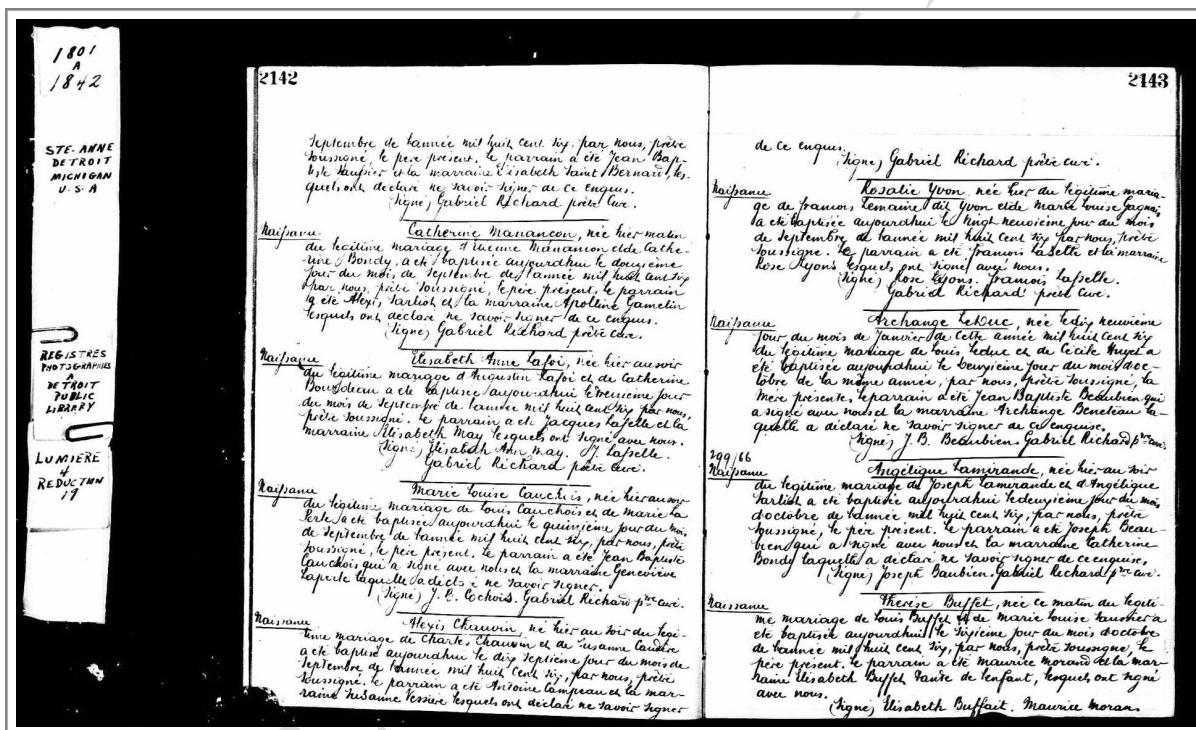 1801
A
1842
STE-ANNE
DETROIT
MICHIGAN
U.S.A
REGISTRES
PHOTOGRAPHIES
A
DETROIT
PUBLIC
LIBRARY
LUMIERE
4
REDUCTION
17
2142
Septembre de l'année mil huit cent six, par nous, prêtre
soussigné, le père présent. le parrain a été Jean Bap-
tiste et la marraine Elisabeth Saint Bernard, les-
quels ont déclaré ne savoir signer de ce enquis.
(Signé) Gabriel Richard prêtre Curé.
Naissance Catherine Manancon, née hier matin
du légitime mariage d'Etienne Manancon et de Cathe-
rine Bondy, a été baptisée aujourdhui le douzième
jour du mois de Septembre de l'année mil huit cent six
par nous, prêtre soussigné, le père présent, le parrain
a été Alexis Sarliot et la marraine Apolline Gamelin
lesquels ont déclaré ne savoir signer de ce enquis.
(Signé) Gabriel Richard prêtre Curé.
Naissance Elisabeth Anne Lafoi, née hier au soir
du légitime mariage d'Augustin Lafoi et de Catherine
Bourdeau a été baptisée aujourdhui le treizième jour
du mois de Septembre de l'année mil huit cent six par nous,
prêtre soussigné. le parrain a été Jacques Lafelle et la
marraine Elisabeth May lesquels ont signé avec nous.
(Signé) Elisabeth Ann May. J. Lafselle.
Gabriel Richard prêtre Curé.
Naissance Marie Louise Cauchois, née hier au soir
du légitime mariage de Louis Cauchois et de Marie La
Perle a été baptisée aujourdhui le quinzième jour du mois
de Septembre de l'année mil huit cent six, par nous, prêtre
soussigné, le père présent. le parrain a été Jean Baptiste
Cauchois qui a signé avec nous et la marraine Geneviève
Laperle laquelle a déclaré ne savoir signer.
(Signé) J. B. Cochois. Gabriel Richard ptre curé.
Naissance Alexis Chauvin, né hier au soir du légi-
time mariage de Charles Chauvin et de Susanne
a été baptisé aujourdhui le dix septième jour du mois de
Septembre de l'année mil huit cent six, par nous, prêtre
soussigné. le parrain a été Antoine Campeau et la mar-
raine Susanne Vessiere lesquels ont déclaré ne savoir signer
2143
de ce enquis.
(Signé) Gabriel Richard prêtre curé.
Naissance Rosalie Yvon, née hier du légitime maria-
ge de françois Lemaine dit Yvon et de Marie Louise Gagnié
a été baptisée aujourdhui le vingt neuvième jour du mois
de Septembre de l'année mil huit cent six par nous, prêtre
soussigné. le parrain a été françois Laselle et la marraine
Rose Lyons lesquels ont signé avec nous.
(Signé) Rose Lyons. françois Lafselle.
Gabriel Richard prêtre Curé.
Naissance Archange LeDuc, née le dix neuvième
jour du mois de Janvier de Cette année mil huit cent six
du légitime mariage de Louis Leduc et de Cecile a
été baptisée aujourdhui le Deuxième jour du mois d'oc-
tobre de la même année, par nous, prêtre soussigné, la
mère présente, le parrain a été Jean Baptiste Beaubien qui
a signé avec nous et la marraine Archange Beneteau la-
quelle a déclaré ne savoir signer de ce enquise.
(Signé) J. B. Beaubien. Gabriel Richard ptre curé.
299/66
Naissance Angélique Lamirande, née hier au soir
du légitime mariage de Joseph Lamirande et d'Angélique
Sarliot a été baptisée aujourdhui le deuxième jour du mois
d'octobre de l'année mil huit cent six, par nous, prêtre
soussigné, le père présent. le parrain a été Joseph Beau-
bien qui a signé avec nous et la marraine Catherine
Bondy laquelle a déclaré ne savoir signer de ce enquise.
(Signé) Joseph Baubien. Gabriel Richard ptre curé.
Naissance Therèse Buffet, née ce matin du legiti-
me mariage de Louis Buffet et de Marie Louise Saussier a
été baptisée aujourdhui le sixième jour du mois d'octobre
de l'année mil huit cent six, par nous, prêtre soussigné, le
père présent. le parrain a été Maurice Morand et la mar-
raine Elisabeth Buffet tante de l'enfant, lesquels ont signé
avec nous.
(Signé) Elisabeth Buffait. Maurice Moran